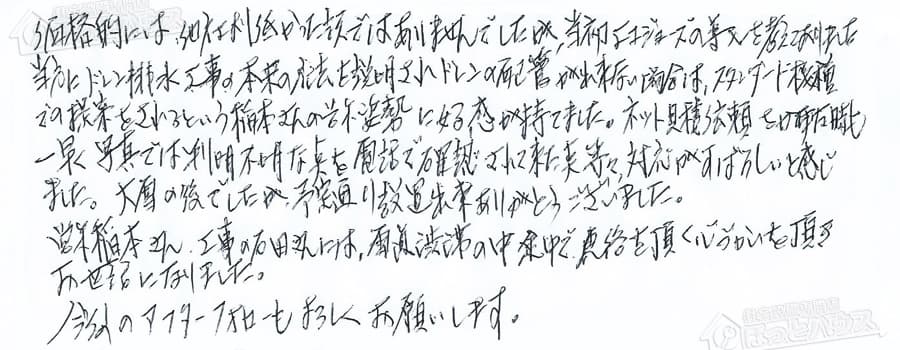 価格的には、他社より低かった訳ではありませんでしたが、当初エコジョーズの導入を考えておりました
当方にドレン排水工事の本来の方法を説明されドレンの配管が出来ない場合は、スタンダード機種
での提案をされるという稲本さんの営業姿勢に好感が持てました。ネット見積依頼をした時も
一早く写真では判明不明な点を電話で確認されて来た事等々、対応がすばらしいと感じ
ました。大雪の後でしたが、予定通り設置出来ありがとうございました。
営業稲本さん、工事の石田さんには、道路渋滞の中途中で連絡を頂く心づかいを頂き
お世話になりました。
今後のアフターフォローもよろしくお願いします。